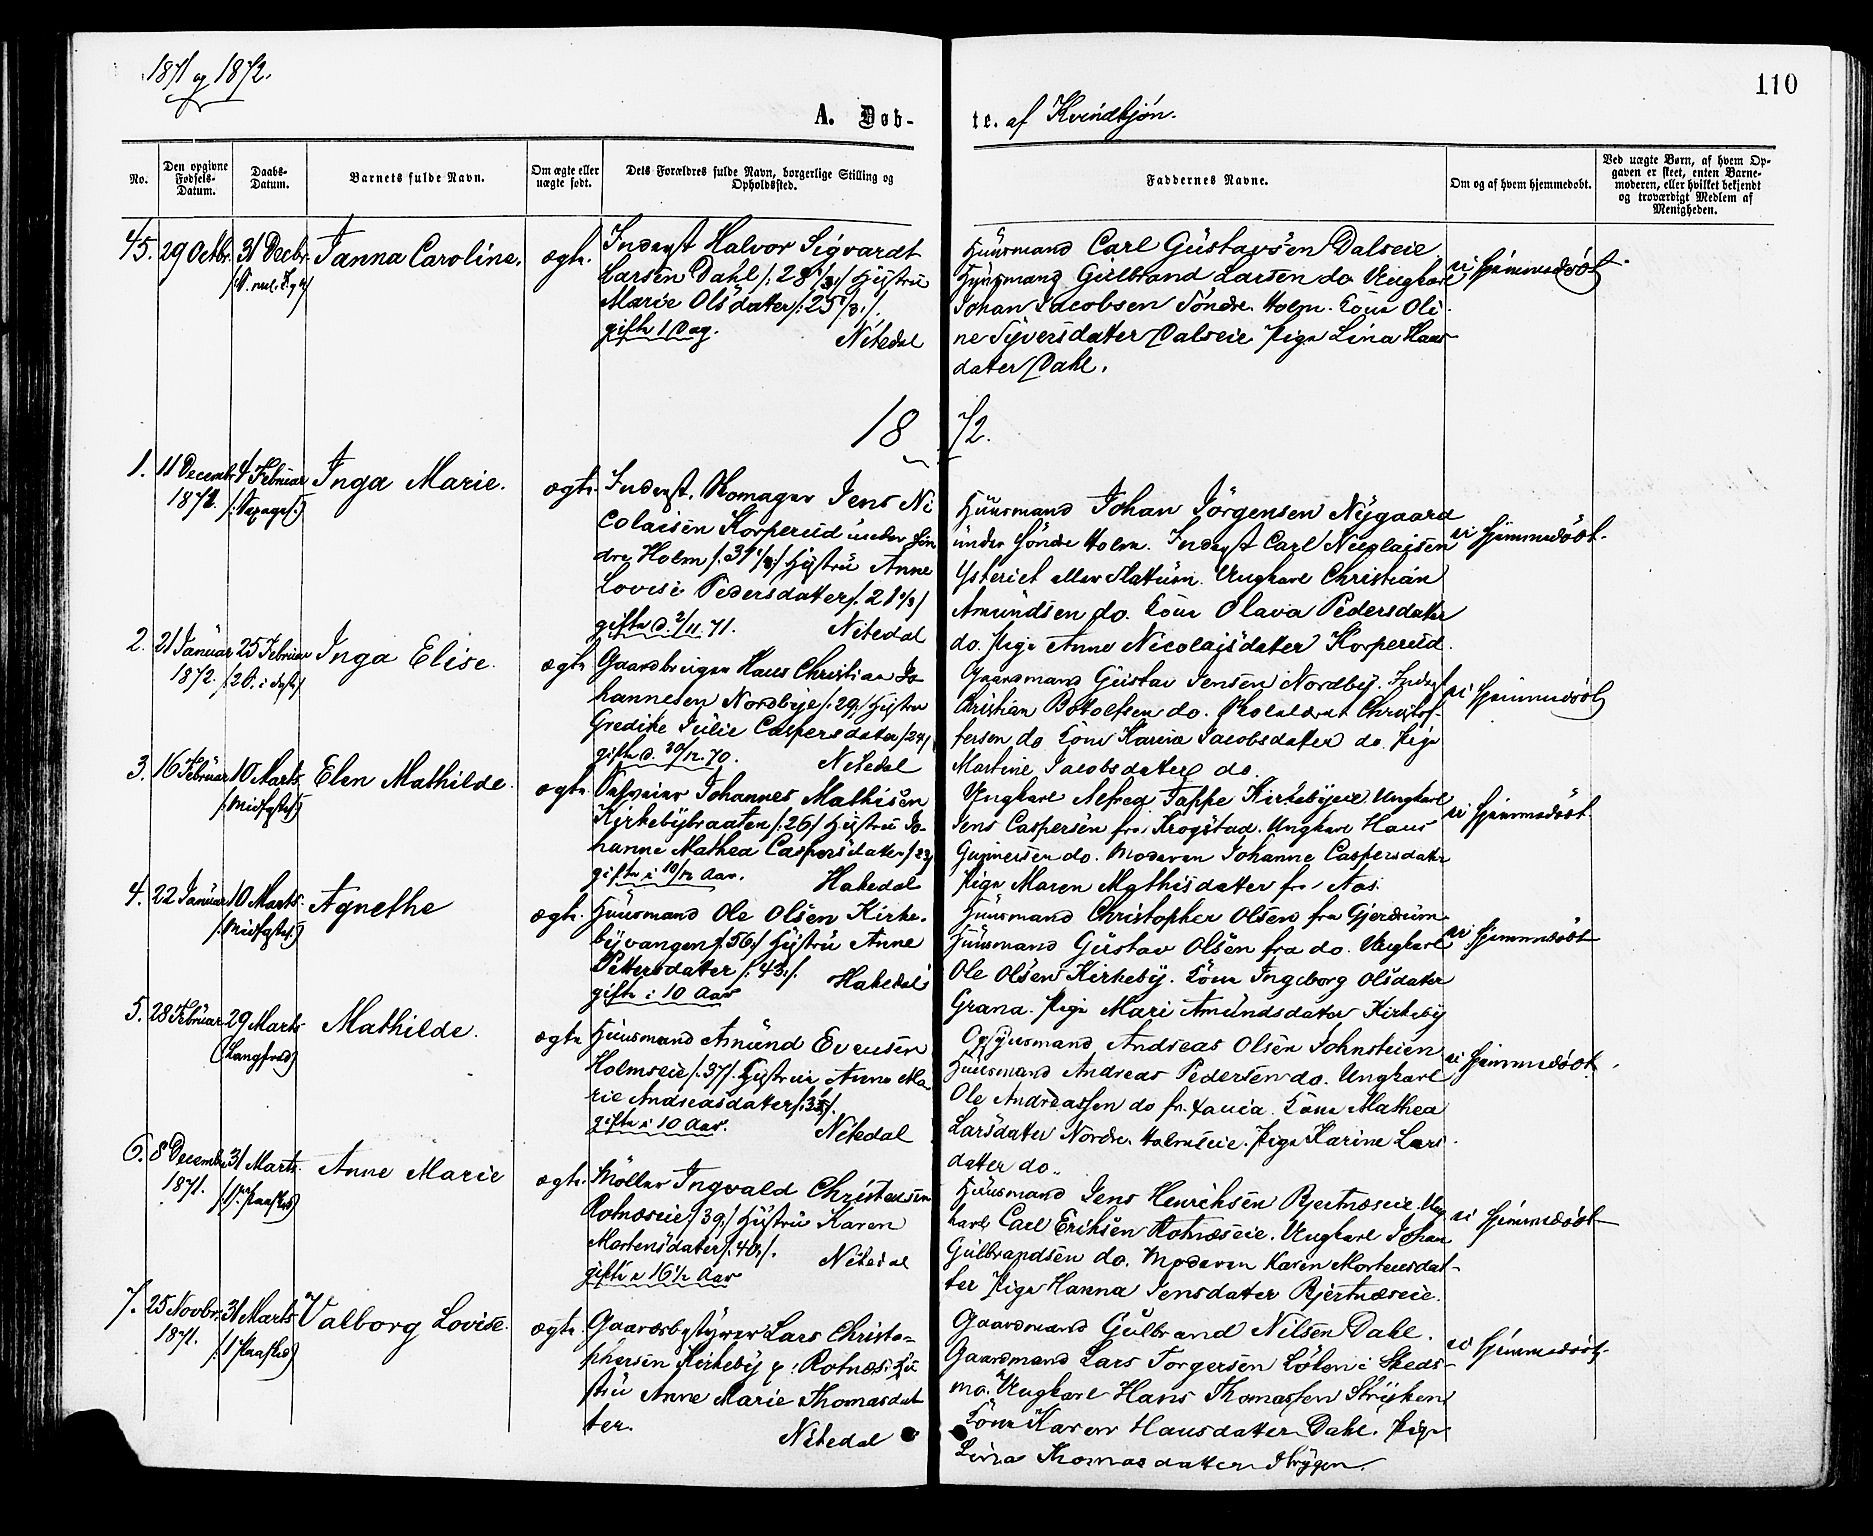 1871 og 1872.
110
A. Døb-
te. af Kvindkjøn.
No.
Den opgivne Fødsels-Datum.
Daabs-Datum.
Barnets fulde Navn.
Om ægte eller uægte født.
Dets Forældres fulde Navn, borgerlige Stilling og Opholdssted.
Faddernes Navne.
Om og af hvem hjemmedøbt.
Ved uægte Børn, af hvem Op-
gaven er skeet, enten Barne-
moderen, eller hvilket bekjendt
og troværdigt Medlem af
Menigheden.
45. 29 Octbr. 31 Decbr. Janna Caroline. ægte.
Inderst Halvor Sigvardt
Larsen Dahl /: 28 Hustru
Marie Olsdatter /: 25
gifte 1 Dag. Nitedal
Huusmand Carl Gustavsen Dalseie
Huusmand Gulbrand Larsen do Ungkarl
Johan Jacobsen Söndre Holm. Kone Oli-
ne Syversdatter Dalseie Pige Lina Hans-
datter Dahl.
ei hjemmedøbt.
1872.
1. 11 Decemb. 4 Februar Inga Marie. ægte.
1871.
Inderst. Skomager Jens Ni
colaisen Korperud under Søn
dre Holm /: 31 Hustru Anne
Lovise Pedersdatter /: 21
gifte d. 2/11. 71. Nitedal
Huusmand Johan Jörgensen Nygaard
under Söndre Holm. Inderst Carl Nicolaisen
Ysteriet eller Slattum. Ungkarl Christian
Amundsen do. Kone Olava Pedersdatter
do. Pige Anne Nicolaisdatter Korperud.
ei hjemmedøbt.
2. 21 Januar 25 Februar Inga Elise. ægte
1872. /: 2 S. i Faste /
Gaardbruger Hans Christian Jo-
hannesen Nordbye /: 29 / Hustru
Gredike Julie Caspersdatter /: 24 /
gifte d. 30/12. 70. Nitedal
Gaardmand Gustav Jensen Nordby. Inderst
Christian Botolfsen do. Christof-
fersen do Kone Karina Jacobsdatter do. Pige
Martine Jacobsdatter do.
ei hjemmedøbt
3. 16 Februar 10 Marts Elen Mathilde. ægte
/: Midfaste :/
Johannes Mathisen
Kirkebybraaten /: 26 / Hustru Jo-
hanne Mathea Caspersdatter /: 23 /
gifte i 10/12 Aar. Hakedal
Ungkarl Alfred Tappe Kirkebyeie Ungkarl
Jens Caspersen fra Krogstad. Ungkarl Hans
Gunnersen do. Moderen Johanne Caspersdatter
Pige Maren Mathisdatter fra Aas.
ei hjemmedøbt
4. 22 Januar 10 Marts Agnethe ægte.
/: Midfaste :/
Huusmand Ole Olsen Kirke-
byvangen /: 56 :/ Hustru Anne
Pettersdatter /: 43 :/.
gifte i 10 Aar Hakedal
Huusmand Christopher Olsen fra Gjerdrum
Huusmand Gustav Olsen fra do. Ungkarl
Ole Olsen Kirkeby. Kone Ingeborg Olsdatter
Grana. Pige Mari Amundsdatter Kirkeby
ei hjemmedøbt
5. 28 Februar 29 Marts Mathilde. ægte
(Langfred)
Huusmand Amund Evensen
Holmseie /: 37 /. Hustru Anne Ma-
rie Andreasdatter /: 35 /.
gifte i 10 Aar. Nitedal
Opsynsmand Andreas Olsen Johnstuen
Huusmand Andreas Pedersen do. Ungkarl
Ole Andreassen do Kone Mathea
Larsdatter Nordre Holmseie. Pige Karine Lars-
datter do.
ei hjemmedøbt
6. 8 Decembr 31 Marts. Anne Marie ægte.
1871. /: 1 Paaskd /
Møller Ingvald Christensen
Rotnæseie /: 39 / Hustru Karen
Mortensdatter /: 40 /.
gifte i 16½ Aar Nitedal
Huusmand Jens Henriksen Bjertnæseie. Ung
karl Carl Eriksen Rotnæseie. Ungkarl Johan
Gulbrandsen do. Moderen Karen Mortensdat-
ter Pige Hanna Jensdatter Bjertnæseie.
ei hjemmedøbt
7. 25 Novbr. 31 Marts Valborg Lovise. ægte.
1871. /: 1 Paaskd /
Gaardsbestyrer Lars Christo-
phersen Kirkeby p: Rotnæs: Hu
stru Anne Marie Thomasdat
ter. Nitedal
Gaardmand Gulbrand Nilsen Dahl.
Gaardmand Lars Torgersen Løken i Skeds-
mo. Ungkarl Hans Thomassen Stryken
Kone Karen Hansdatter Dahl. Pige
Lina Thomasdatter Strygen.
ei hjemmedøbt.